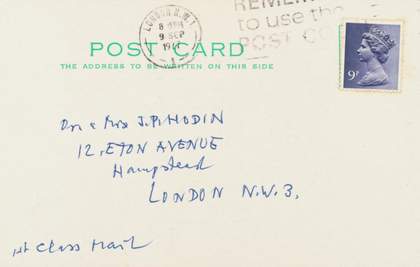 LONDON N.W.1
8 AM
9 SEP
19
REMEM
to use the
POST CO
POST CARD
THE ADDRESS TO BE WRITTEN ON THIS SIDE
9P
Dr. & Mrs J.P. HODIN
12, ETON AVENUE
Hampstead
LONDON N.W.3.
1st Class Mail